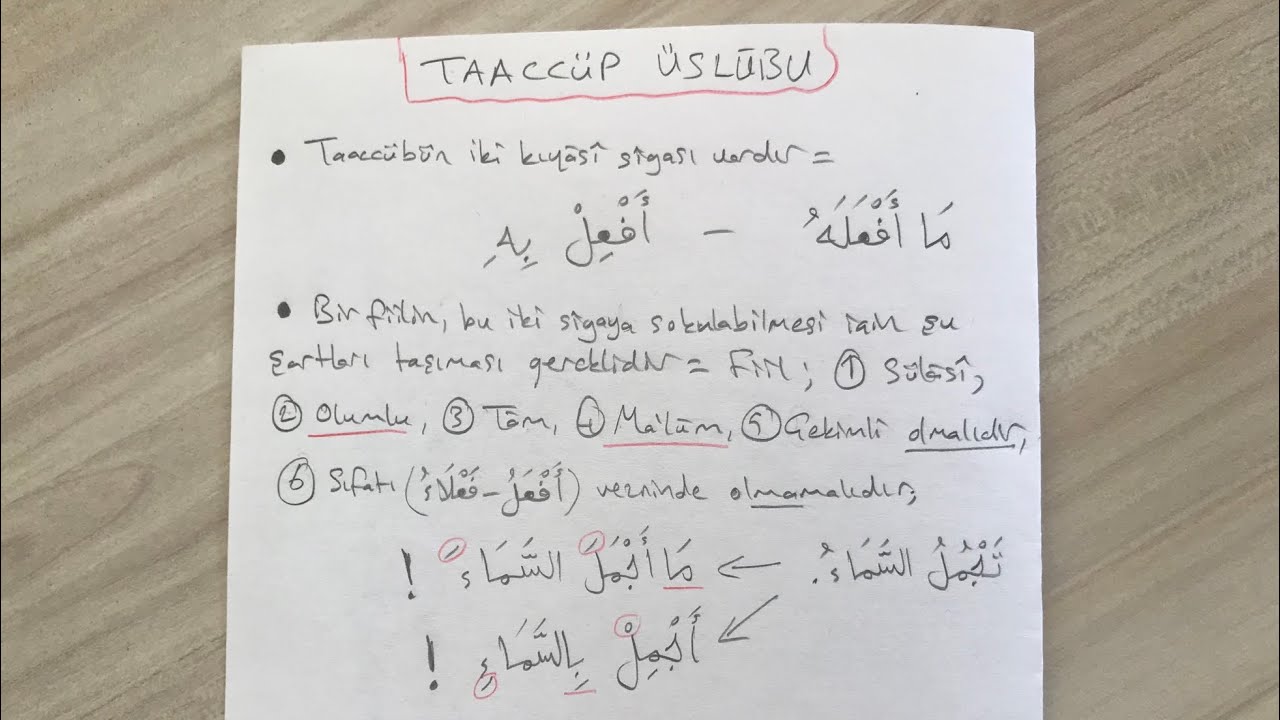 TAACCÜP ÜSLÛBU
• Taaccübün iki kıyâsî sîgası vardır =
مَا أَفْعَلَهُ – أَفْعِلْ بِهِ
• Bir fiilin, bu iki sîgaya sokulabilmesi için şu
şartları taşıması gereklidir = Fiil; ① Sülâsî,
② Olumlu, ③ Tâm, ④ Ma'lûm, ⑤ Çekimli olmalıdır,
⑥ Sıfatı (أَفْعَلُ - فَعْلَاءُ) vezninde olmamalıdır;
تَجْمُلُ السَّمَاءُ. ← مَا أَجْمَلَ السَّمَاءَ !
أَجْمِلْ بِالسَّمَاءِ !